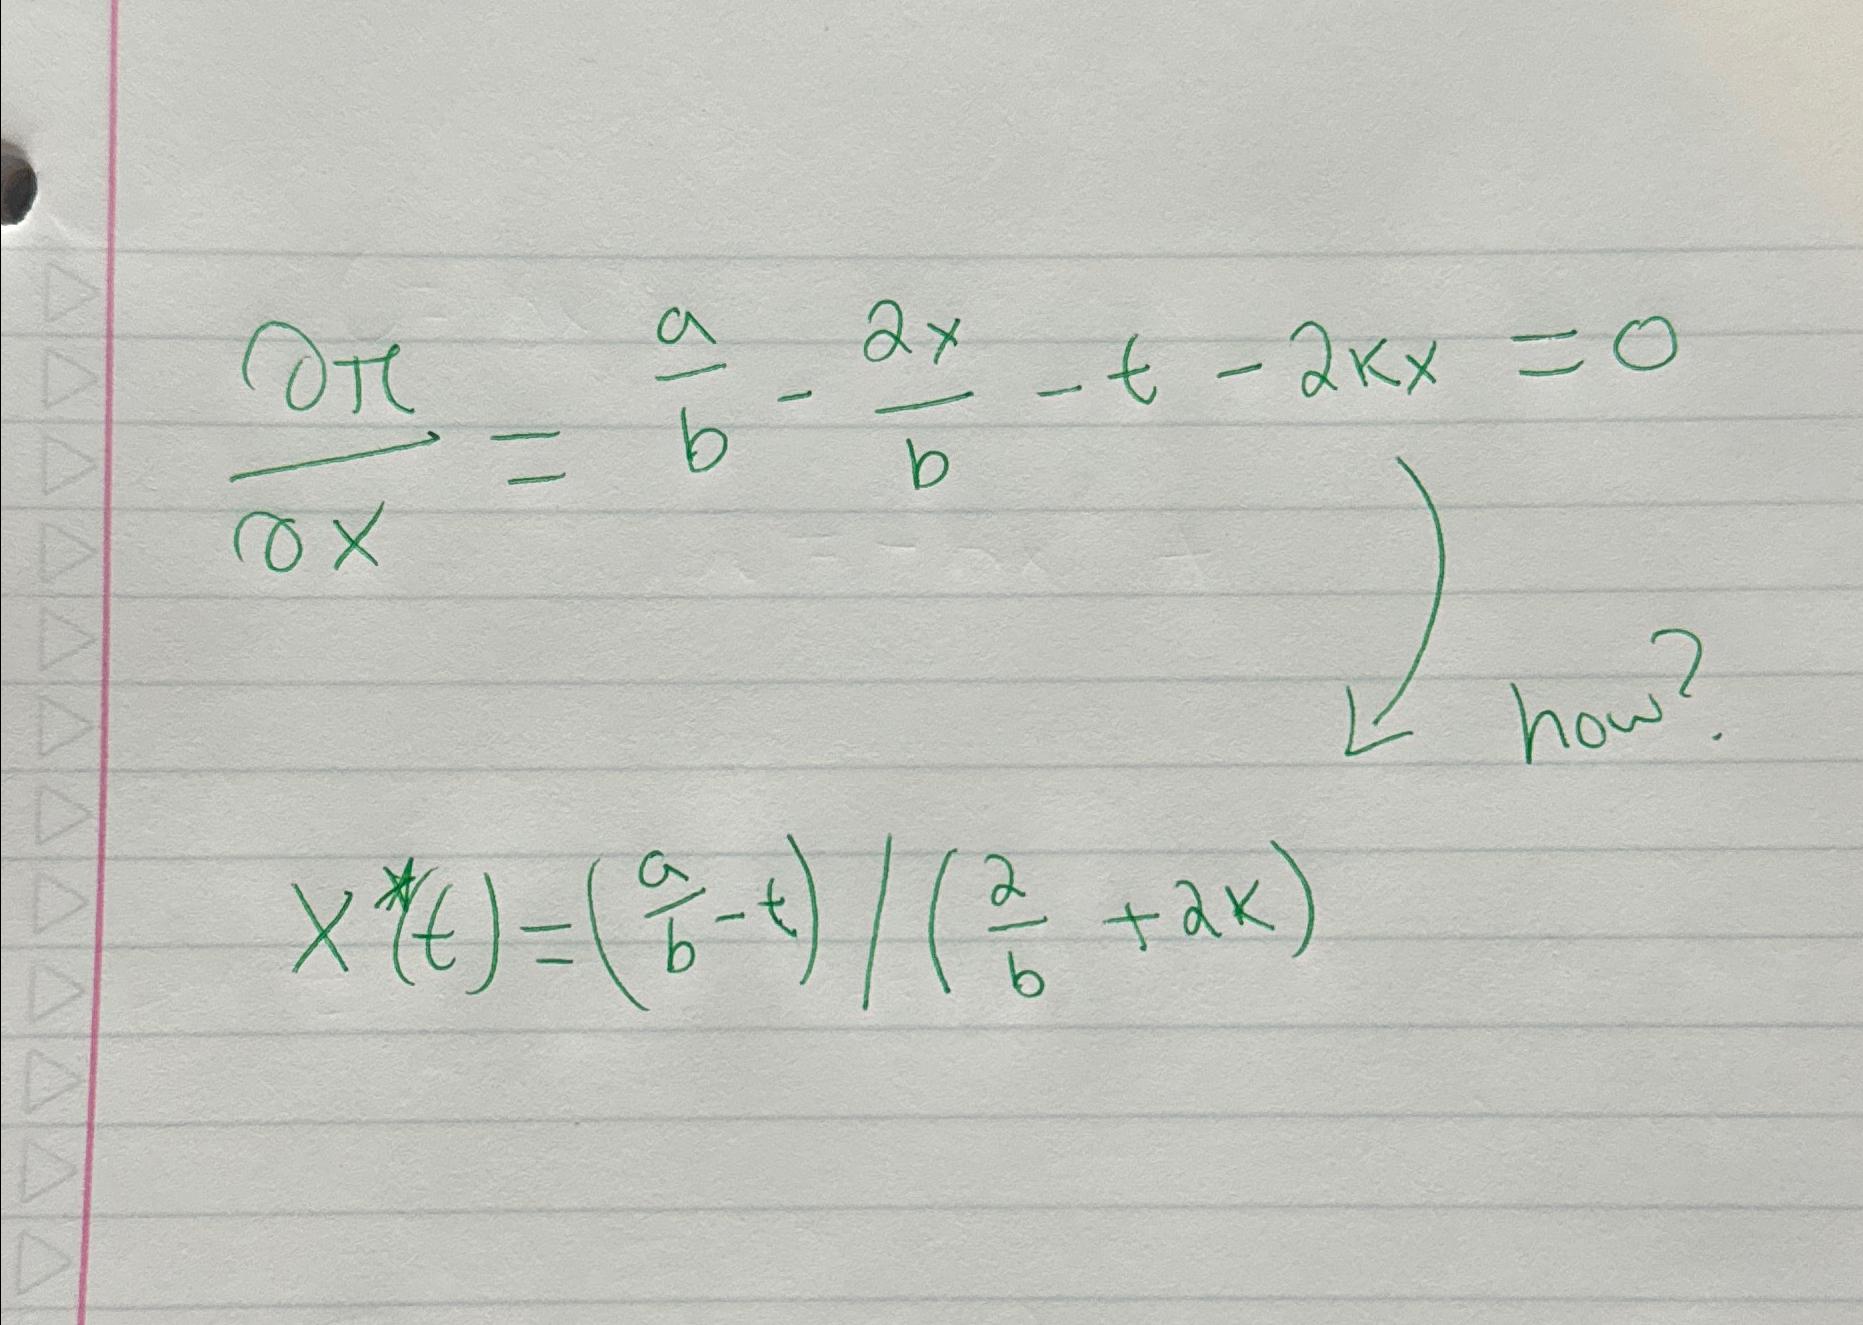 ∂π/∂x = a/b - 2x/b - t - 2kx = 0
how?
x*(t) = (a/b - t) / (2/b + 2k)